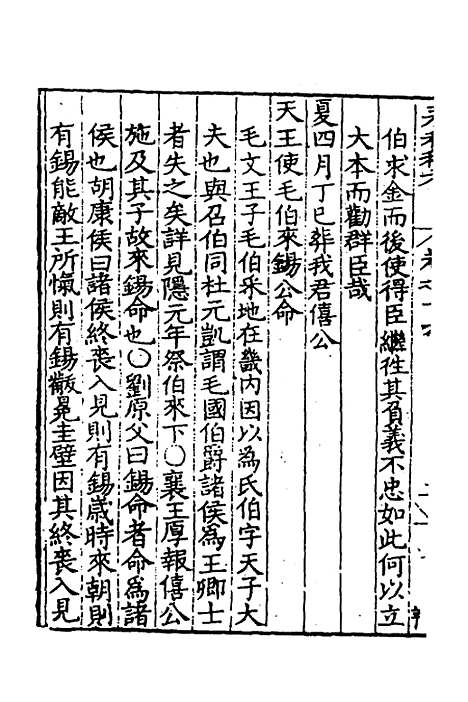 伯求金而後使得臣繼徃其負義不忠如此何以立
大本而勸群臣哉
夏四月丁巳葬我君僖公
天王使毛伯來錫公命
毛文王子毛伯采地在畿内因以為氏伯字天子大
夫也與召伯同杜元凱謂毛國伯爵諸侯為王卿士
者失之矣詳見隱元年祭伯來下〇襄王厚報僖公
施及其子故來錫命也〇劉原父曰錫命者命為諸
侯也胡康侯曰諸侯終喪入見則有錫歳時來朝則
有錫能敵王所愾則有錫黻冕圭璧因其終喪入見